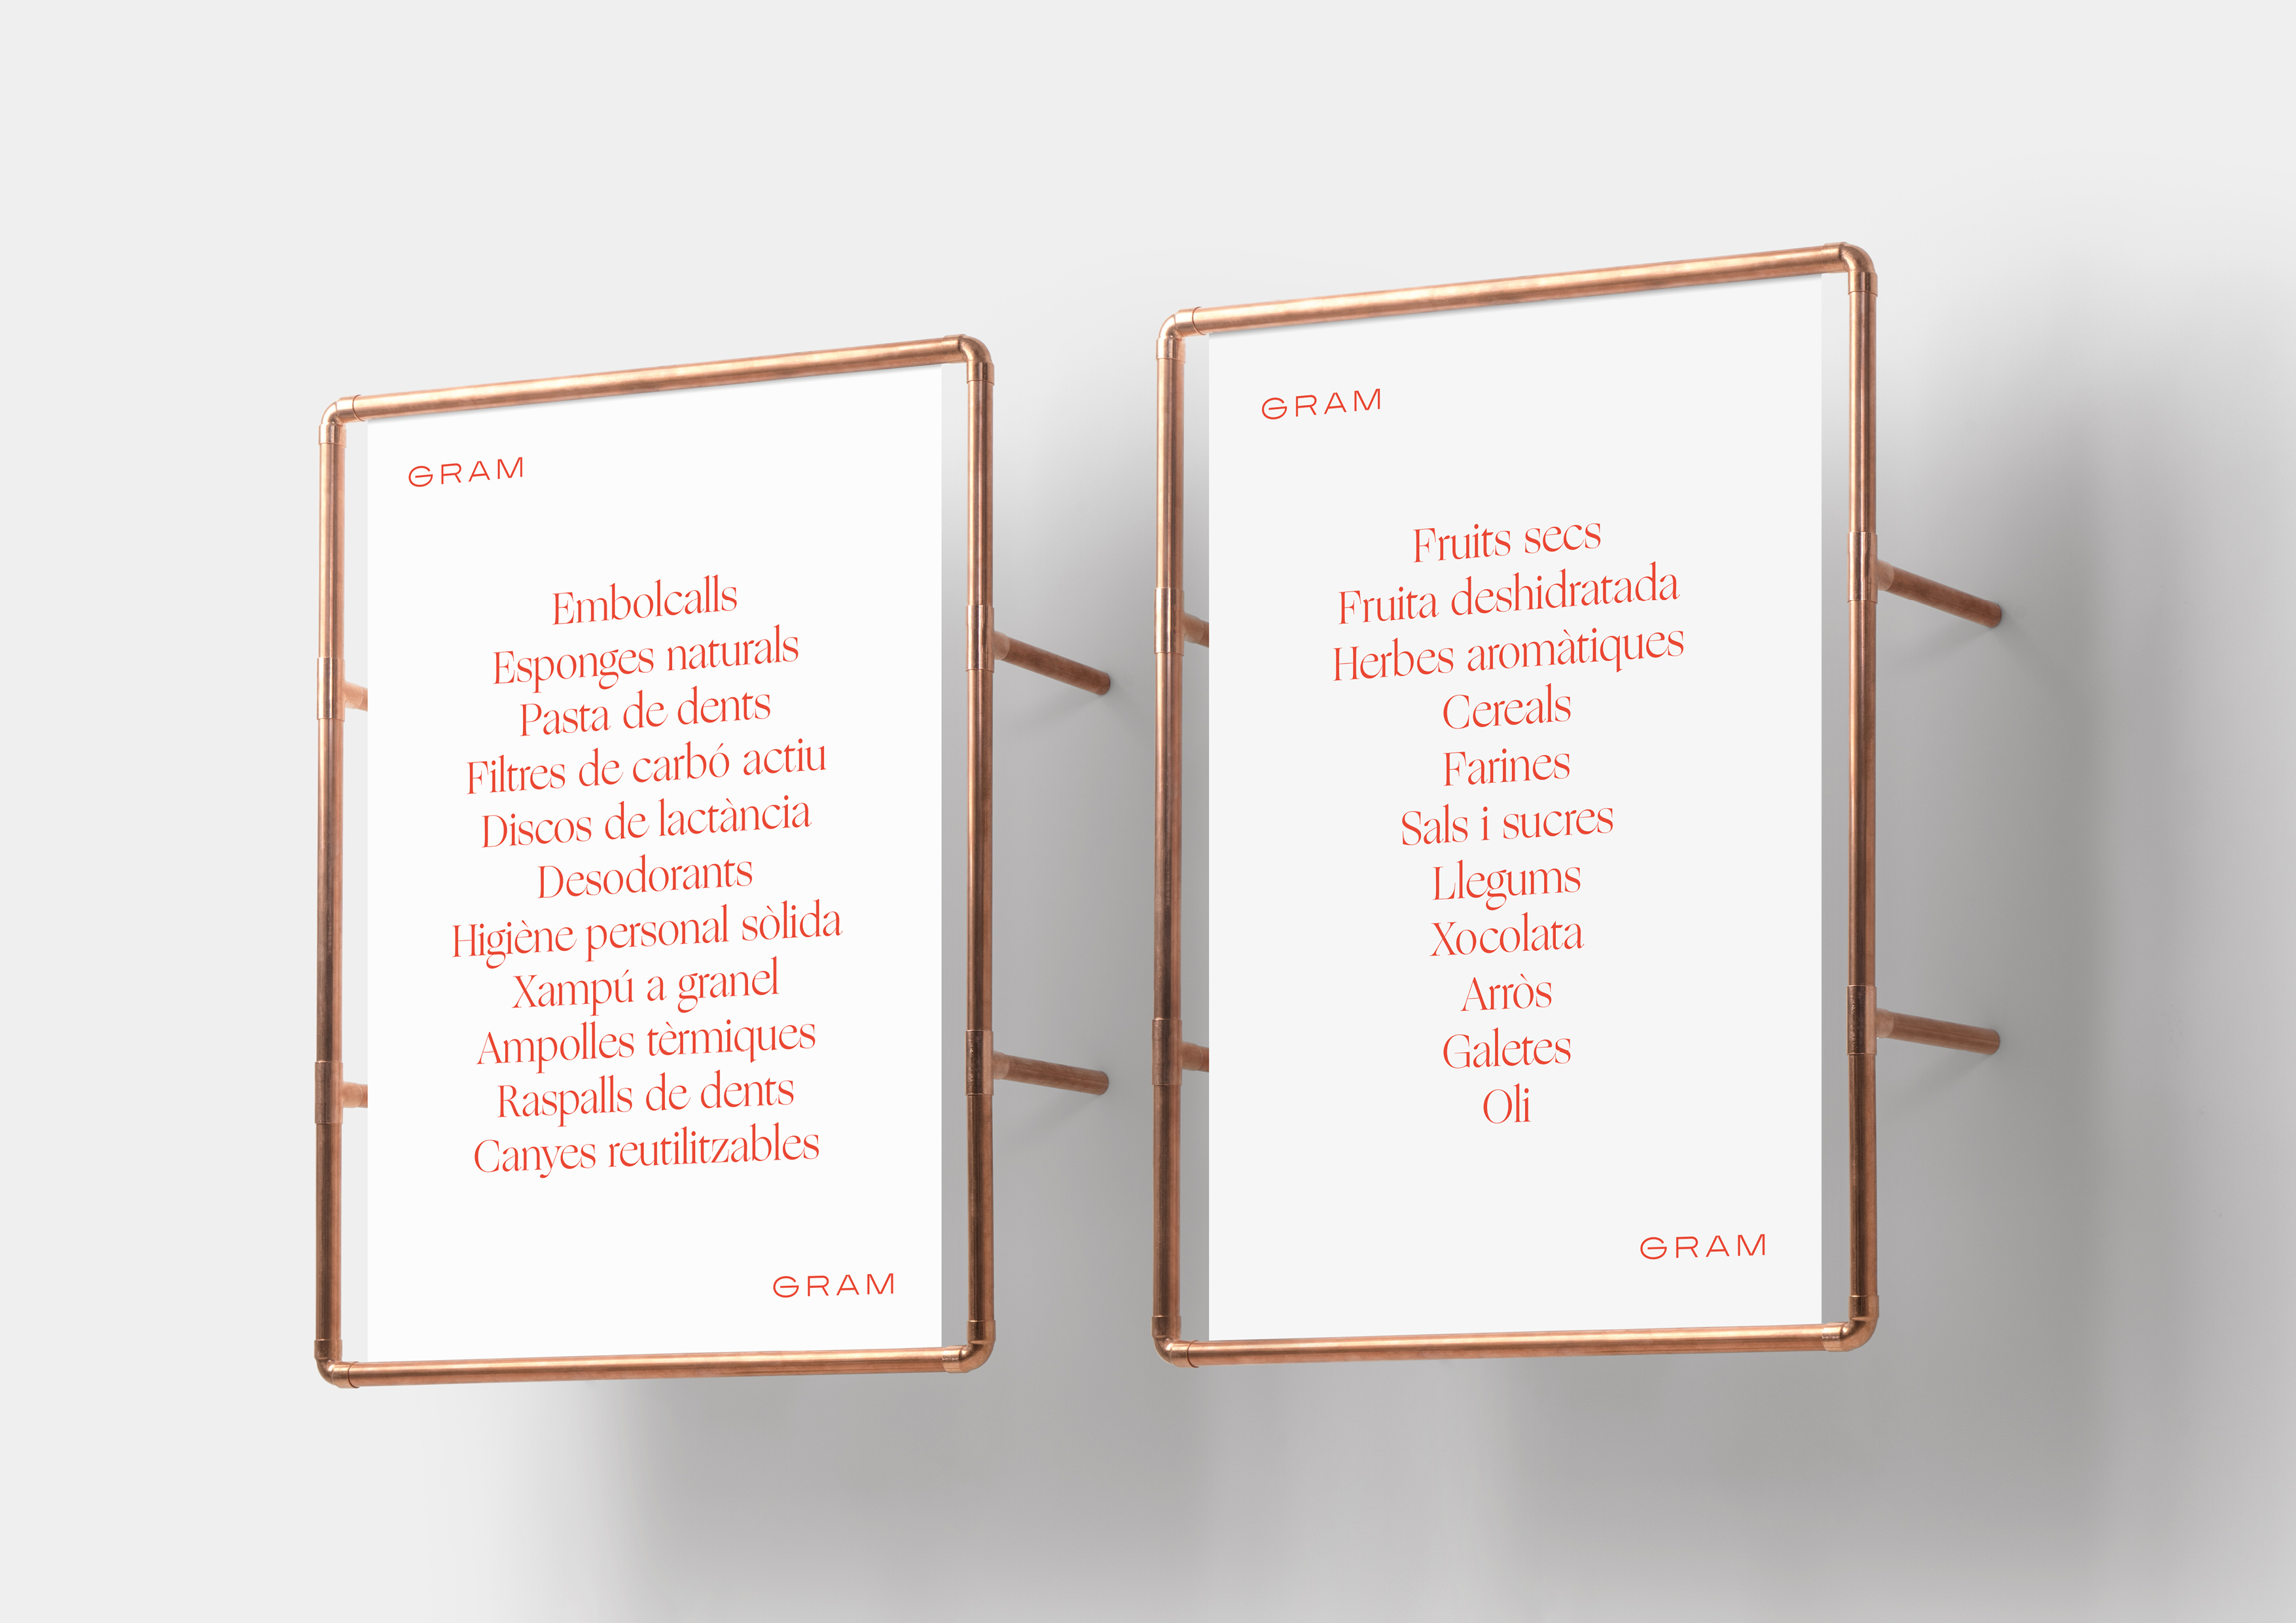 GRAM
Embolcalls
Esponges naturals
Pasta de dents
Filtres de carbó actiu
Discos de lactància
Desodorants
Higiène personal sòlida
Xampú a granel
Ampolles tèrmiques
Raspalls de dents
Canyes reutilitzables
GRAM
GRAM
Fruits secs
Fruita deshidratada
Herbes aromàtiques
Cereals
Farines
Sals i sucres
Llegums
Xocolata
Arròs
Galetes
Oli
GRAM